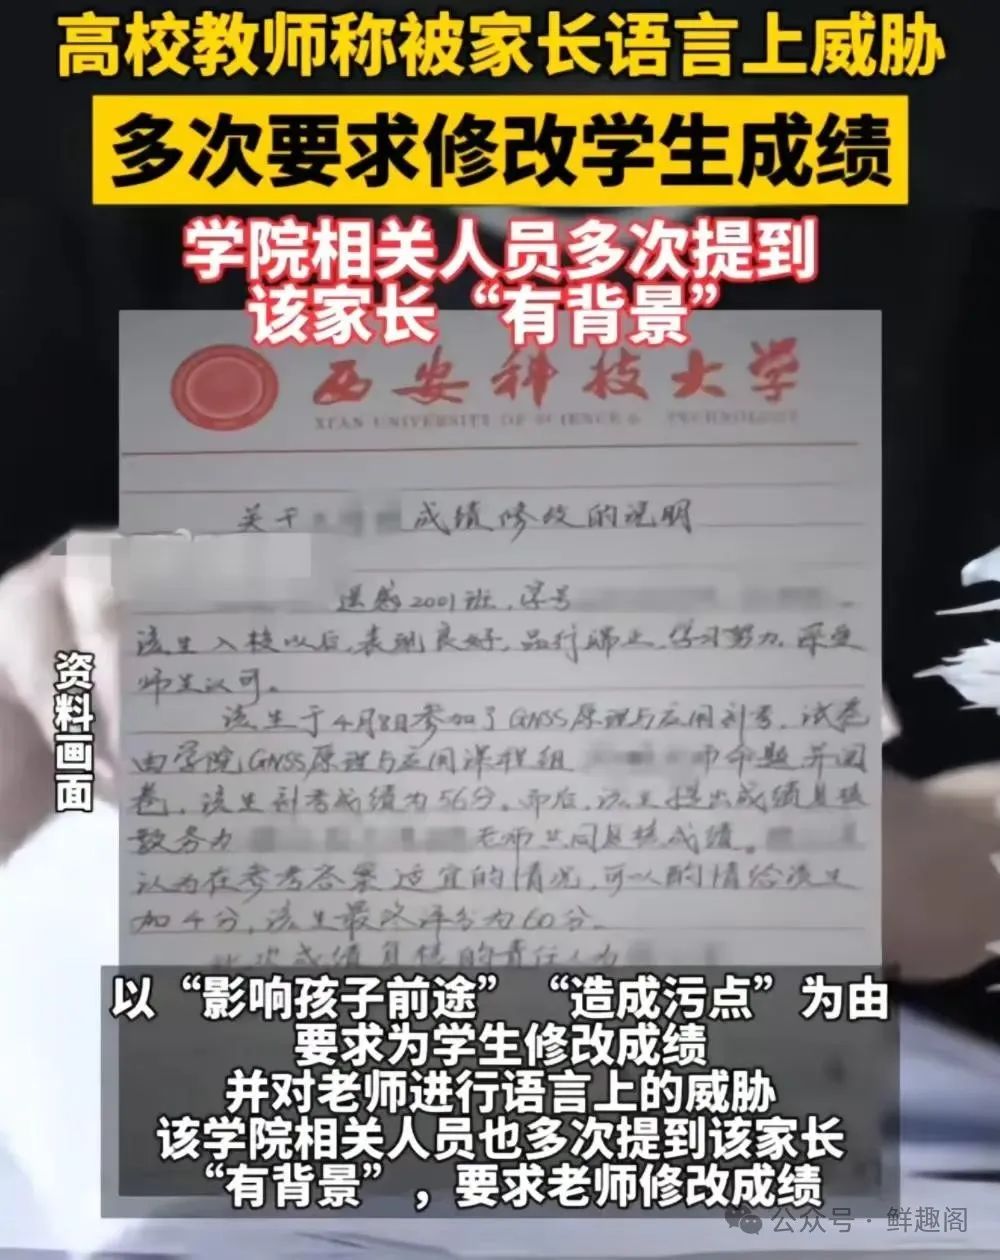 高校教师称被家长语言上威胁
多次要求修改学生成绩
学院相关人员多次提到
该家长“有背景”
西安科技大学
XI'AN UNIVERSITY OF SCIENCE & TECHNOLOGY
关于 成绩修改的说明
遥感2001班，学号
该生入校以后，表现良好，品行端正，学习努力，深受
师生认可。
该生于4月8日参加了GNSS原理与应用补考，试卷
由学院GNSS原理与应用课程组 师命题并阅
卷，该生补考成绩为56分。而后，该生提出成绩复核
教务办 老师共同复核成绩。
认为在参考答案适宜的情况，可以酌情给该生
加4分，该生最终评分为60分。
此次成绩复核的责任人为
资料画面
以“影响孩子前途”“造成污点”为由
要求为学生修改成绩
并对老师进行语言上的威胁
该学院相关人员也多次提到该家长
“有背景”，要求老师修改成绩
公众号·鲜趣阁